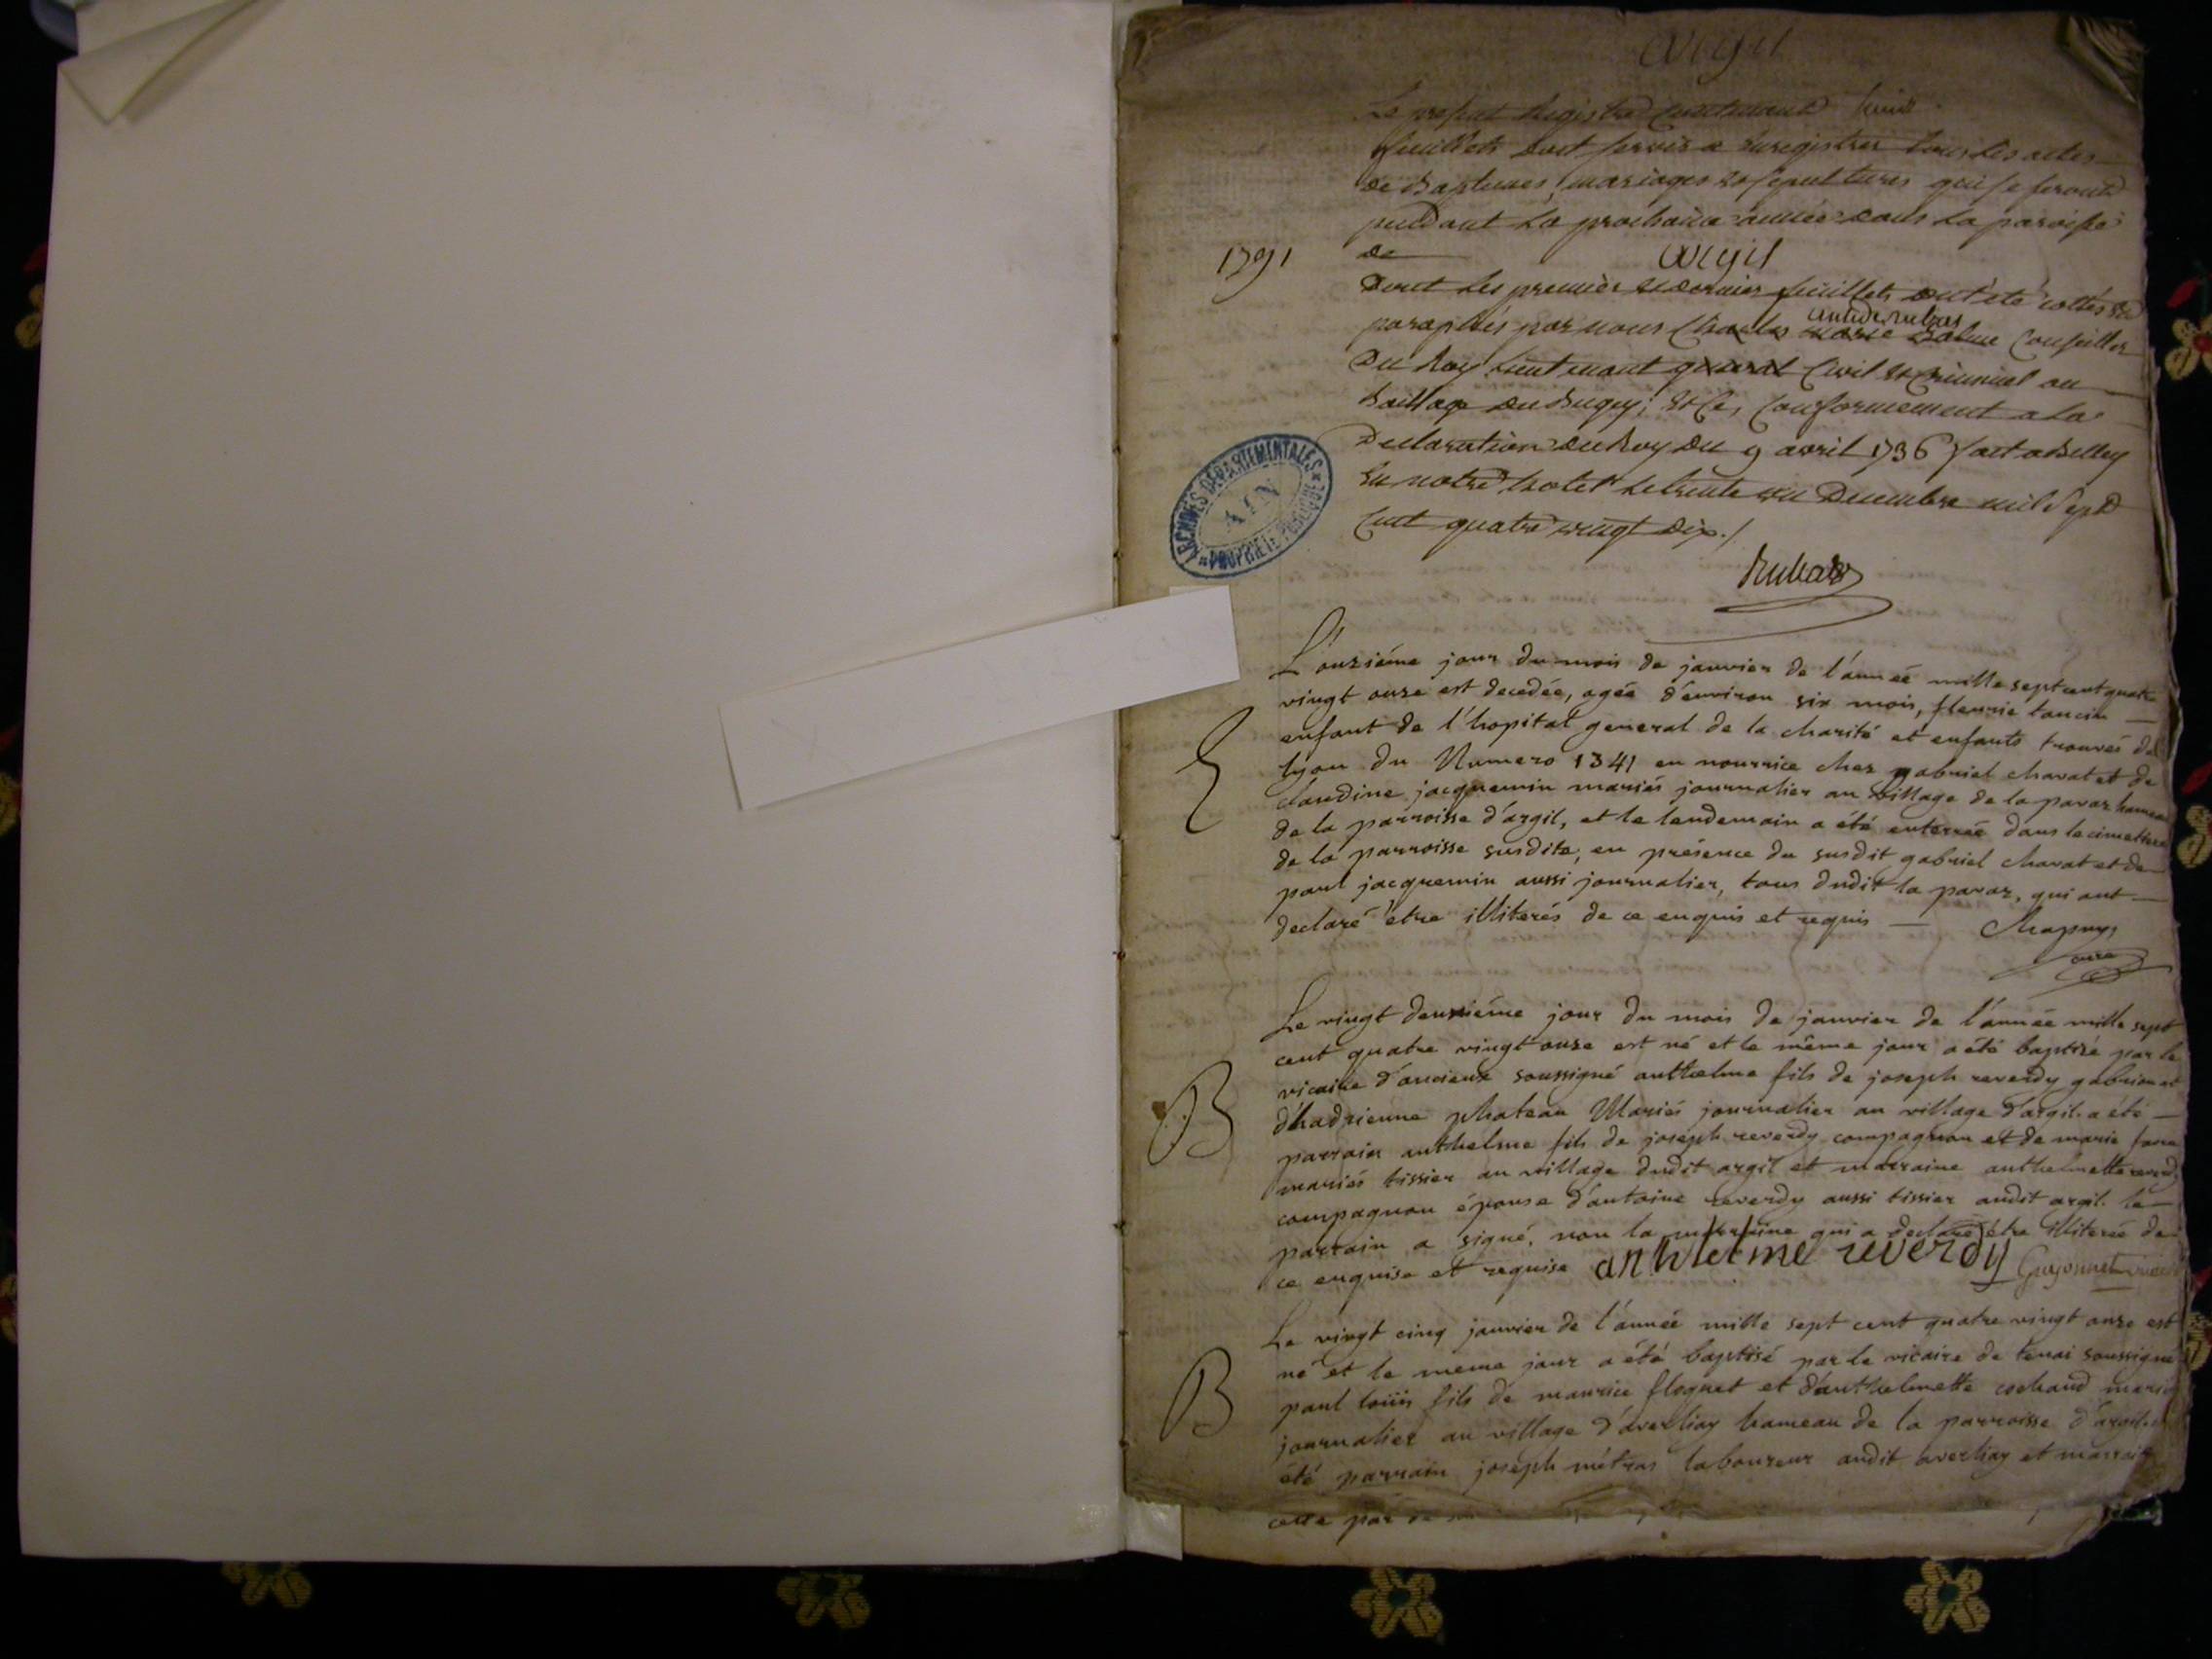 argil
Le present Registre Contenant huit
feuillets doit servir a Enregistrer tous les actes
de Baptemes, mariages et sepultures qui se feront
pendant La prochaine année dans La paroisse
1791
de argil
Dont Les premier et dernier feuillets ont été cottés et
paraphés par nous Charles Marie Balme Conseiller
Du Roy Lieutenant general Civil et Criminel au
Baillage du Bugey; et Ce, Conformement a la
Declaration du Roy du 9 avril 1736 fait a Belley
En notre hotel le trente un Decembre mil Sept
Cent quatre vingt Dix./
ARCHIVES DEPARTEMENTALES
AIN
PROPRIETE PUBLIQUE
L'onziéme jour du mois de janvier de l'année mille sept cent quatre
vingt onze est decedée, agée d'environ six mois, fleurie
enfant de l'hopital general de la charité et enfants trouvés de
lyon du Numero 1341 en nourrice chez gabriel charat et de
claudine jacquemin mariés journalier au village de la pavaz hameau
de la parroisse d'argil, et le lendemain a été enterrée dans le cimetiere
E
de la parroisse susdite, en présence du susdit gabriel charat et de
paul jacquemin aussi journalier, tous dudit la pavaz, qui ont
declaré être illiterés de ce enquis et requis — Chapuy
curé
Le vingt deuxiéme jour du mois de janvier de l'année mille sept
cent quatre vingt onze est né et le même jour a été baptisé par le
vicaire d'oncieux soussigné anthelme fils de joseph reverdy gabrion et
B
d'hadrienne phateau Mariés journalier au village d'argil. a été
parrain anthelme fils de joseph reverdy compagnon et de marie
mariés tissier au village dudit argil et marraine anthelmette reverdy
compagnon épouse d'antoine reverdy aussi tissier audit argil. le
parrain a signé, non la marraine qui a declaré être illiterée de
ce enquise et requise anthelme reverdy Guyonnet vicaire
Le vingt cinq janvier de l'année mille sept cent quatre vingt onze est
né et le meme jour a été baptisé par le vicaire de tenai soussigné
B
paul loüis fils de maurice floquet et d'anthelmette cochand mariés
journalier au village d'averliaz hameau de la parroisse d'argil. a
été parrain joseph métras laboureur audit averliaz et marraine